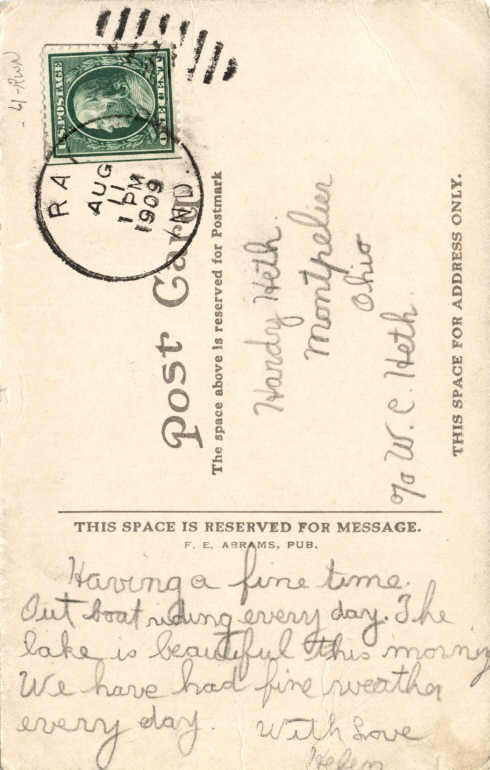 4-RWN
U.S. POSTAGE
ONE CENT
RA
IND.
AUG
11
1 PM
1909
Post Card
The space above is reserved for Postmark
Hardy Heth.
Montpelier
Ohio
c/o W. C. Heth.
THIS SPACE FOR ADDRESS ONLY.
THIS SPACE IS RESERVED FOR MESSAGE.
F. E. ABRAMS, PUB.
Having a fine time.
Out boat riding every day. The
lake is beautiful this morning
We have had fine weather
every day. With Love
Helen